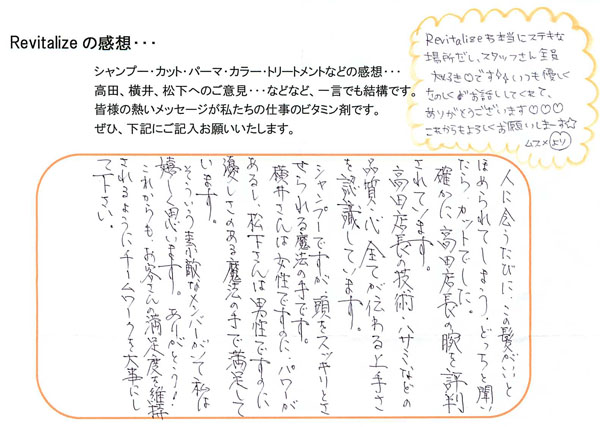 Revitalize の感想・・・
シャンプー・カット・パーマ・カラー・トリートメントなどの感想・・・
高田、横井、松下へのご意見・・・などなど、一言でも結構です。
皆様の熱いメッセージが私たちの仕事のビタミン剤です。
ぜひ、下記にご記入お願いいたします。
Revitalizeも本当にステキな
場所だし、スタッフさん全員
大好き♡です いつも優しく
たのしくお話してくれて、
ありがとうございます♡♡♡
これからもよろしくお願いしまーす☆
ムスメより
人に会うたびに、この髪がいいと
ほめられてしまう、どっちと聞い
たら、カットでした。
確かに、高田店長の腕を評判
されています。
高田店長の技術、ハサミなどの
品質、心、全てが伝わる上手さ
を認識しています。
シャンプーですが、頭をスッキリとさ
せられる魔法の手です。
横井さんは女性ですのに、パワーが
あるし、松下さんは男性ですのに
優しさのある魔法の手で満足して
います。
そういう素敵なメンバーがいて私は
嬉しく思います。ありがとう!
これからも、お客さんの満足度を維持
されるようにチームワークを大事にし
て下さい。